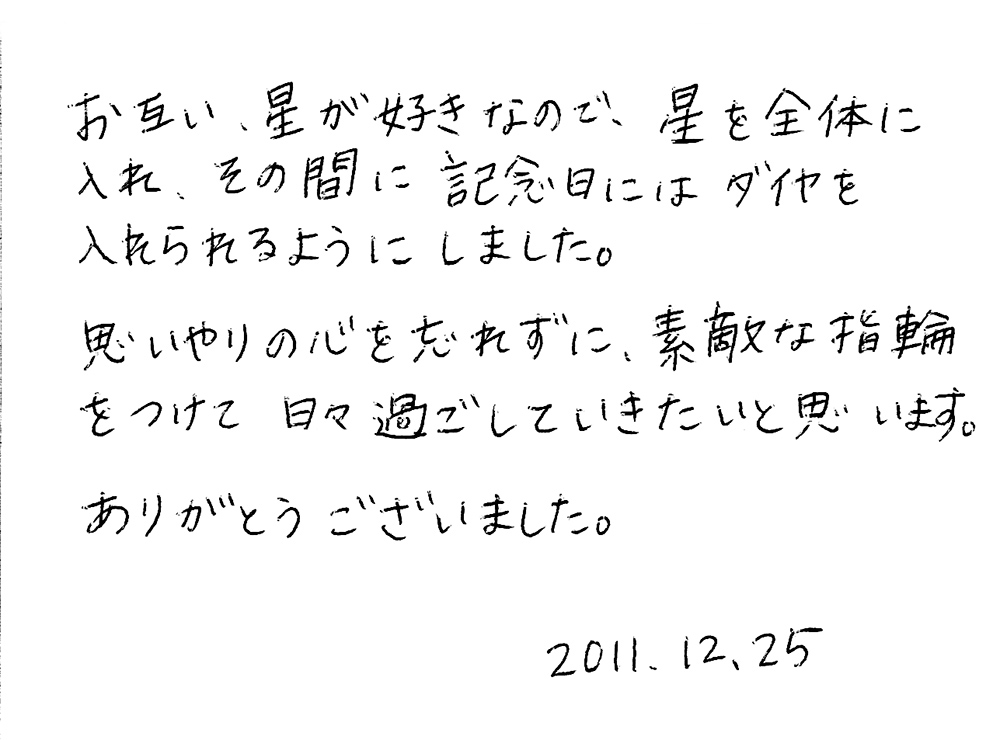 お互い、星が好きなので、星を全体に
入れ、その間に記念日にはダイヤを
入れられるようにしました。
思いやりの心を忘れずに、素敵な指輪
をつけて日々過ごしていきたいと思います。
ありがとうございました。
2011.12.25